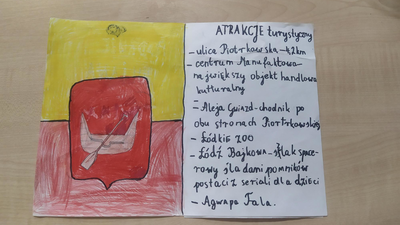 ATRAKCJE turystyczny
- ulica Piotrkowska - 4,2 km
- centrum Manufaktura
największy objekt handlowo
kulturalny
- Aleja Gwiazd - chodnik po
obu stronach Piotrkowskiej
- Łódzkie ZOO
- Łódź Bajkowa - szlak space-
rowy śladami pomników
postaci z seriali dla dzieci
- Aquapa Fala.